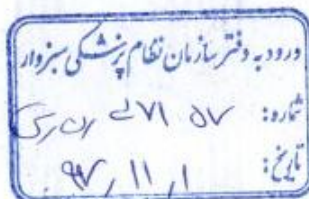 ورود به دفتر سازمان نظام پزشکی سبزوار
شماره: ۵۷ ۷۱
تاریخ: ۹۷،۱۱،۱